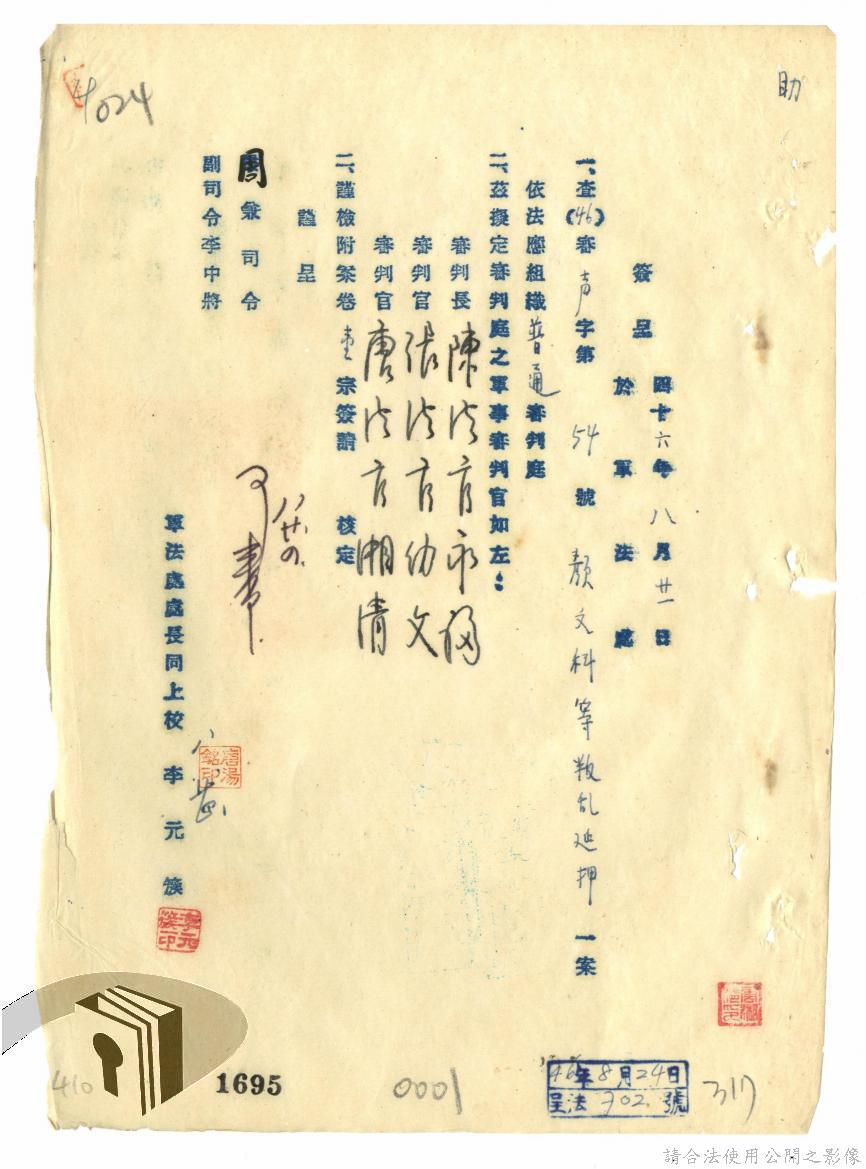 助
4024
簽呈
四十六年八月廿一日
於軍法處
一、查(46)審声字第54號顏文科等叛乱延押一案
依法應組織普通審判庭
二、茲擬定審判庭之軍事審判官如左：
審判長陳法官永福
審判官張法官幼文
審判官唐法官湘清
三、謹檢附案卷壹宗簽請核定
謹呈
周兼司令
副司令李中將
八廿四
軍法處處長同上校李元簇
李元簇印
1695
0001
410
46年8月24日
呈法302號
317
請合法使用公開之影像